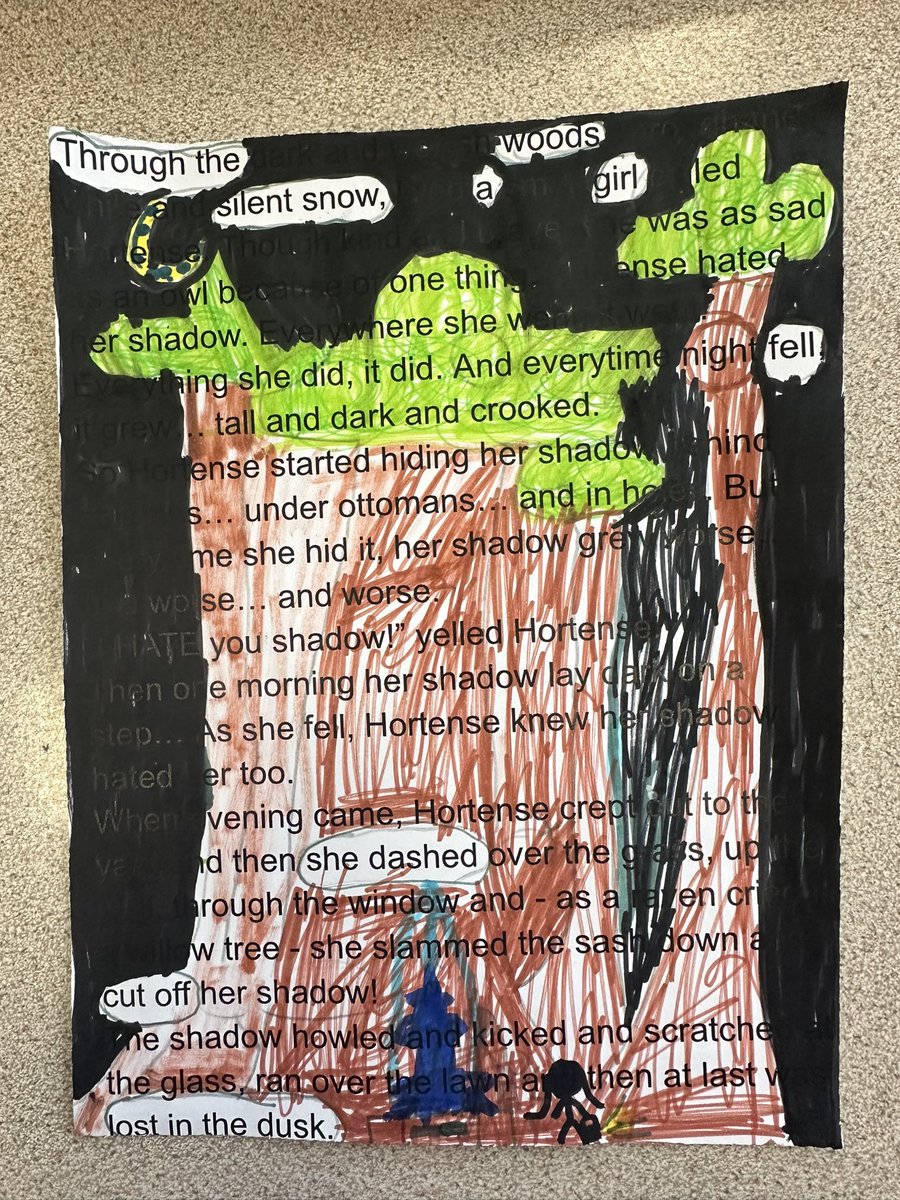 Through the dark and woods
and silent snow, a girl led
ense. Though kind was as sad
as an owl because of one thing. ense hated
her shadow. Everywhere she
Everything she did, it did. And everytime night fell
it grew... tall and dark and crooked.
So Hortense started hiding her shadow hind
s... under ottomans... and in . But
me she hid it, her shadow grew worse...
worse... and worse.
HATE you shadow!” yelled Hortense
Then one morning her shadow lay dark on a
step... As she fell, Hortense knew her shadow
hated her too.
When evening came, Hortense crept out to the
and then she dashed over the grass, up the
through the window and - as a raven cried
willow tree - she slammed the sash down
cut off her shadow!
The shadow howled and kicked and scratched at
the glass, ran over the lawn and then at last was
lost in the dusk.